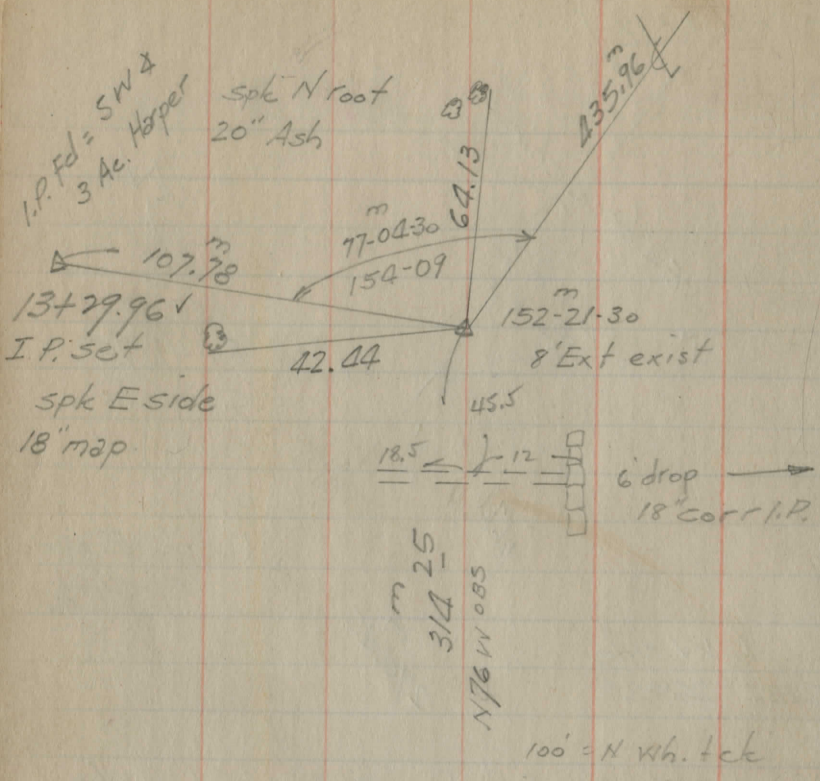 I.P. Fd = SW 4
3 Ac. Harper
spk N root
20" Ash
64.13
435.96 m
107.78 m
m
77-04-30
154-09
13+29.96 ✓
I.P. set
42.44
m
152-21-30
8' Ext exist
spk E side
18" map
45.5
18.5
12
6' drop
18" corr I.P.
m
314 25
N76W OBS
100' = N Wh. tck